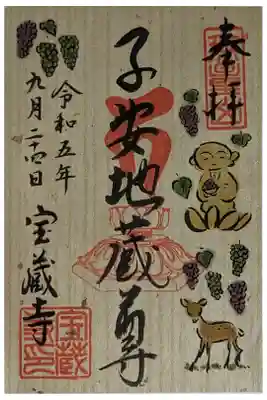 奉拝
子安地蔵尊
令和五年
九月二十四日
宝蔵寺